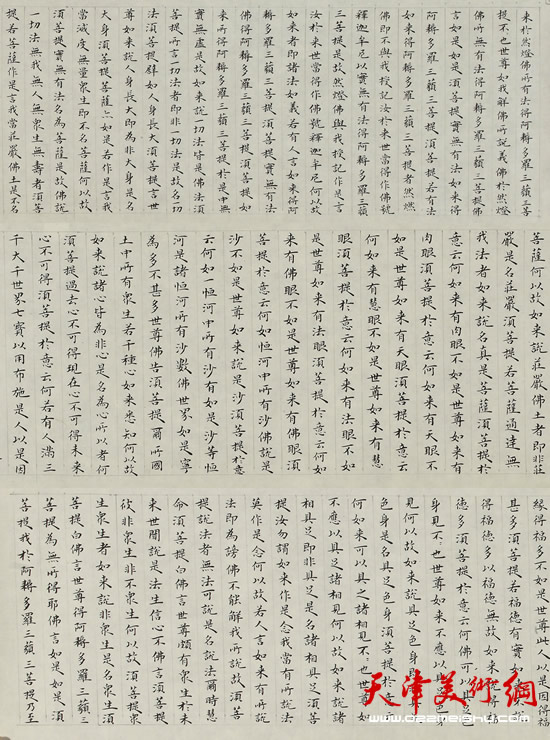 來於然燈佛所有法得阿耨多羅三藐三菩
提不也世尊如我解佛所說義佛於然燈
佛所無有法得阿耨多羅三藐三菩提佛
言如是如是須菩提實無有法如來得
阿耨多羅三藐三菩提須菩提若有法
如來得阿耨多羅三藐三菩提者然燈
佛即不與我授記汝於來世當得作佛號
釋迦牟尼以實無有法得阿耨多羅三藐
三菩提是故然燈佛與我授記作是言
汝於來世當得作佛號釋迦牟尼何以故
如來者即諸法如義若有人言如來得
阿耨多羅三藐三菩提須菩提實無有法
佛得阿耨多羅三藐三菩提須菩提如
來所得阿耨多羅三藐三菩提於是中無
實無虛是故如來說一切法皆是佛法須
菩提所言一切法者即非一切法是故名一切
法須菩提譬如人身長大須菩提言世
尊如來說人身長大即為非大身是名
大身須菩提菩薩亦如是若作是言我
當滅度無量眾生即不名菩薩何以故
須菩提實無有法名為菩薩是故佛說
一切法無我無人無眾生無壽者須菩
提若菩薩作是言我當莊嚴佛土是不名
菩薩何以故如來說莊嚴佛土者即非莊
嚴是名莊嚴須菩提若菩薩通達無
我法者如來說名真是菩薩須菩提於
意云何如來有肉眼不如是世尊如來有
肉眼須菩提於意云何如來有天眼不
如是世尊如來有天眼須菩提於意云
何如來有慧眼不如是世尊如來有慧
眼須菩提於意云何如來有法眼不如
是世尊如來有法眼須菩提於意云何如
來有佛眼不如是世尊如來有佛眼須
菩提於意云何如恒河中所有沙佛說是
沙不如是世尊如來說是沙須菩提於意
云何如一恒河中所有沙有如是沙等恒
河是諸恒河所有沙數佛世界如是寧
為多不甚多世尊佛告須菩提爾所國
土中所有眾生若干種心如來悉知何以故
如來說諸心皆為非心是名為心所以者何
須菩提過去心不可得現在心不可得未來
心不可得須菩提於意云何若有人滿三
千大千世界七寶以用布施是人以是因
緣得福多不如是世尊此人以是因得福
甚多須菩提若福德有實如來不說
得福德多以福德無故如來說得福
德多須菩提於意云何佛可以具足色
身見不不也世尊如來不應以具足色身
見何以故如來說具足色身即非具足
色身是名具足色身須菩提於意云
何如來可以具足諸相見不不也世尊如來
不應以具足諸相見何以故如來說諸
相具足即非具足是名諸相具足須菩
提汝勿謂如來作是念我當有所說法
莫作是念何以故若人言如來有所說
法即為謗佛不能解我所說故須菩
提說法者無法可說是名說法爾時慧
命須菩提白佛言世尊頗有眾生於未
來世聞說是法生信心不佛言須菩提
彼非眾生非不眾生何以故須菩提眾
生眾生者如來說非眾生是名眾生須
菩提白佛言世尊得阿耨多羅三藐三
菩提為無所得耶佛言如是如是須
菩提我於阿耨多羅三藐三菩提乃至
天津美術網
www.022meishu.com